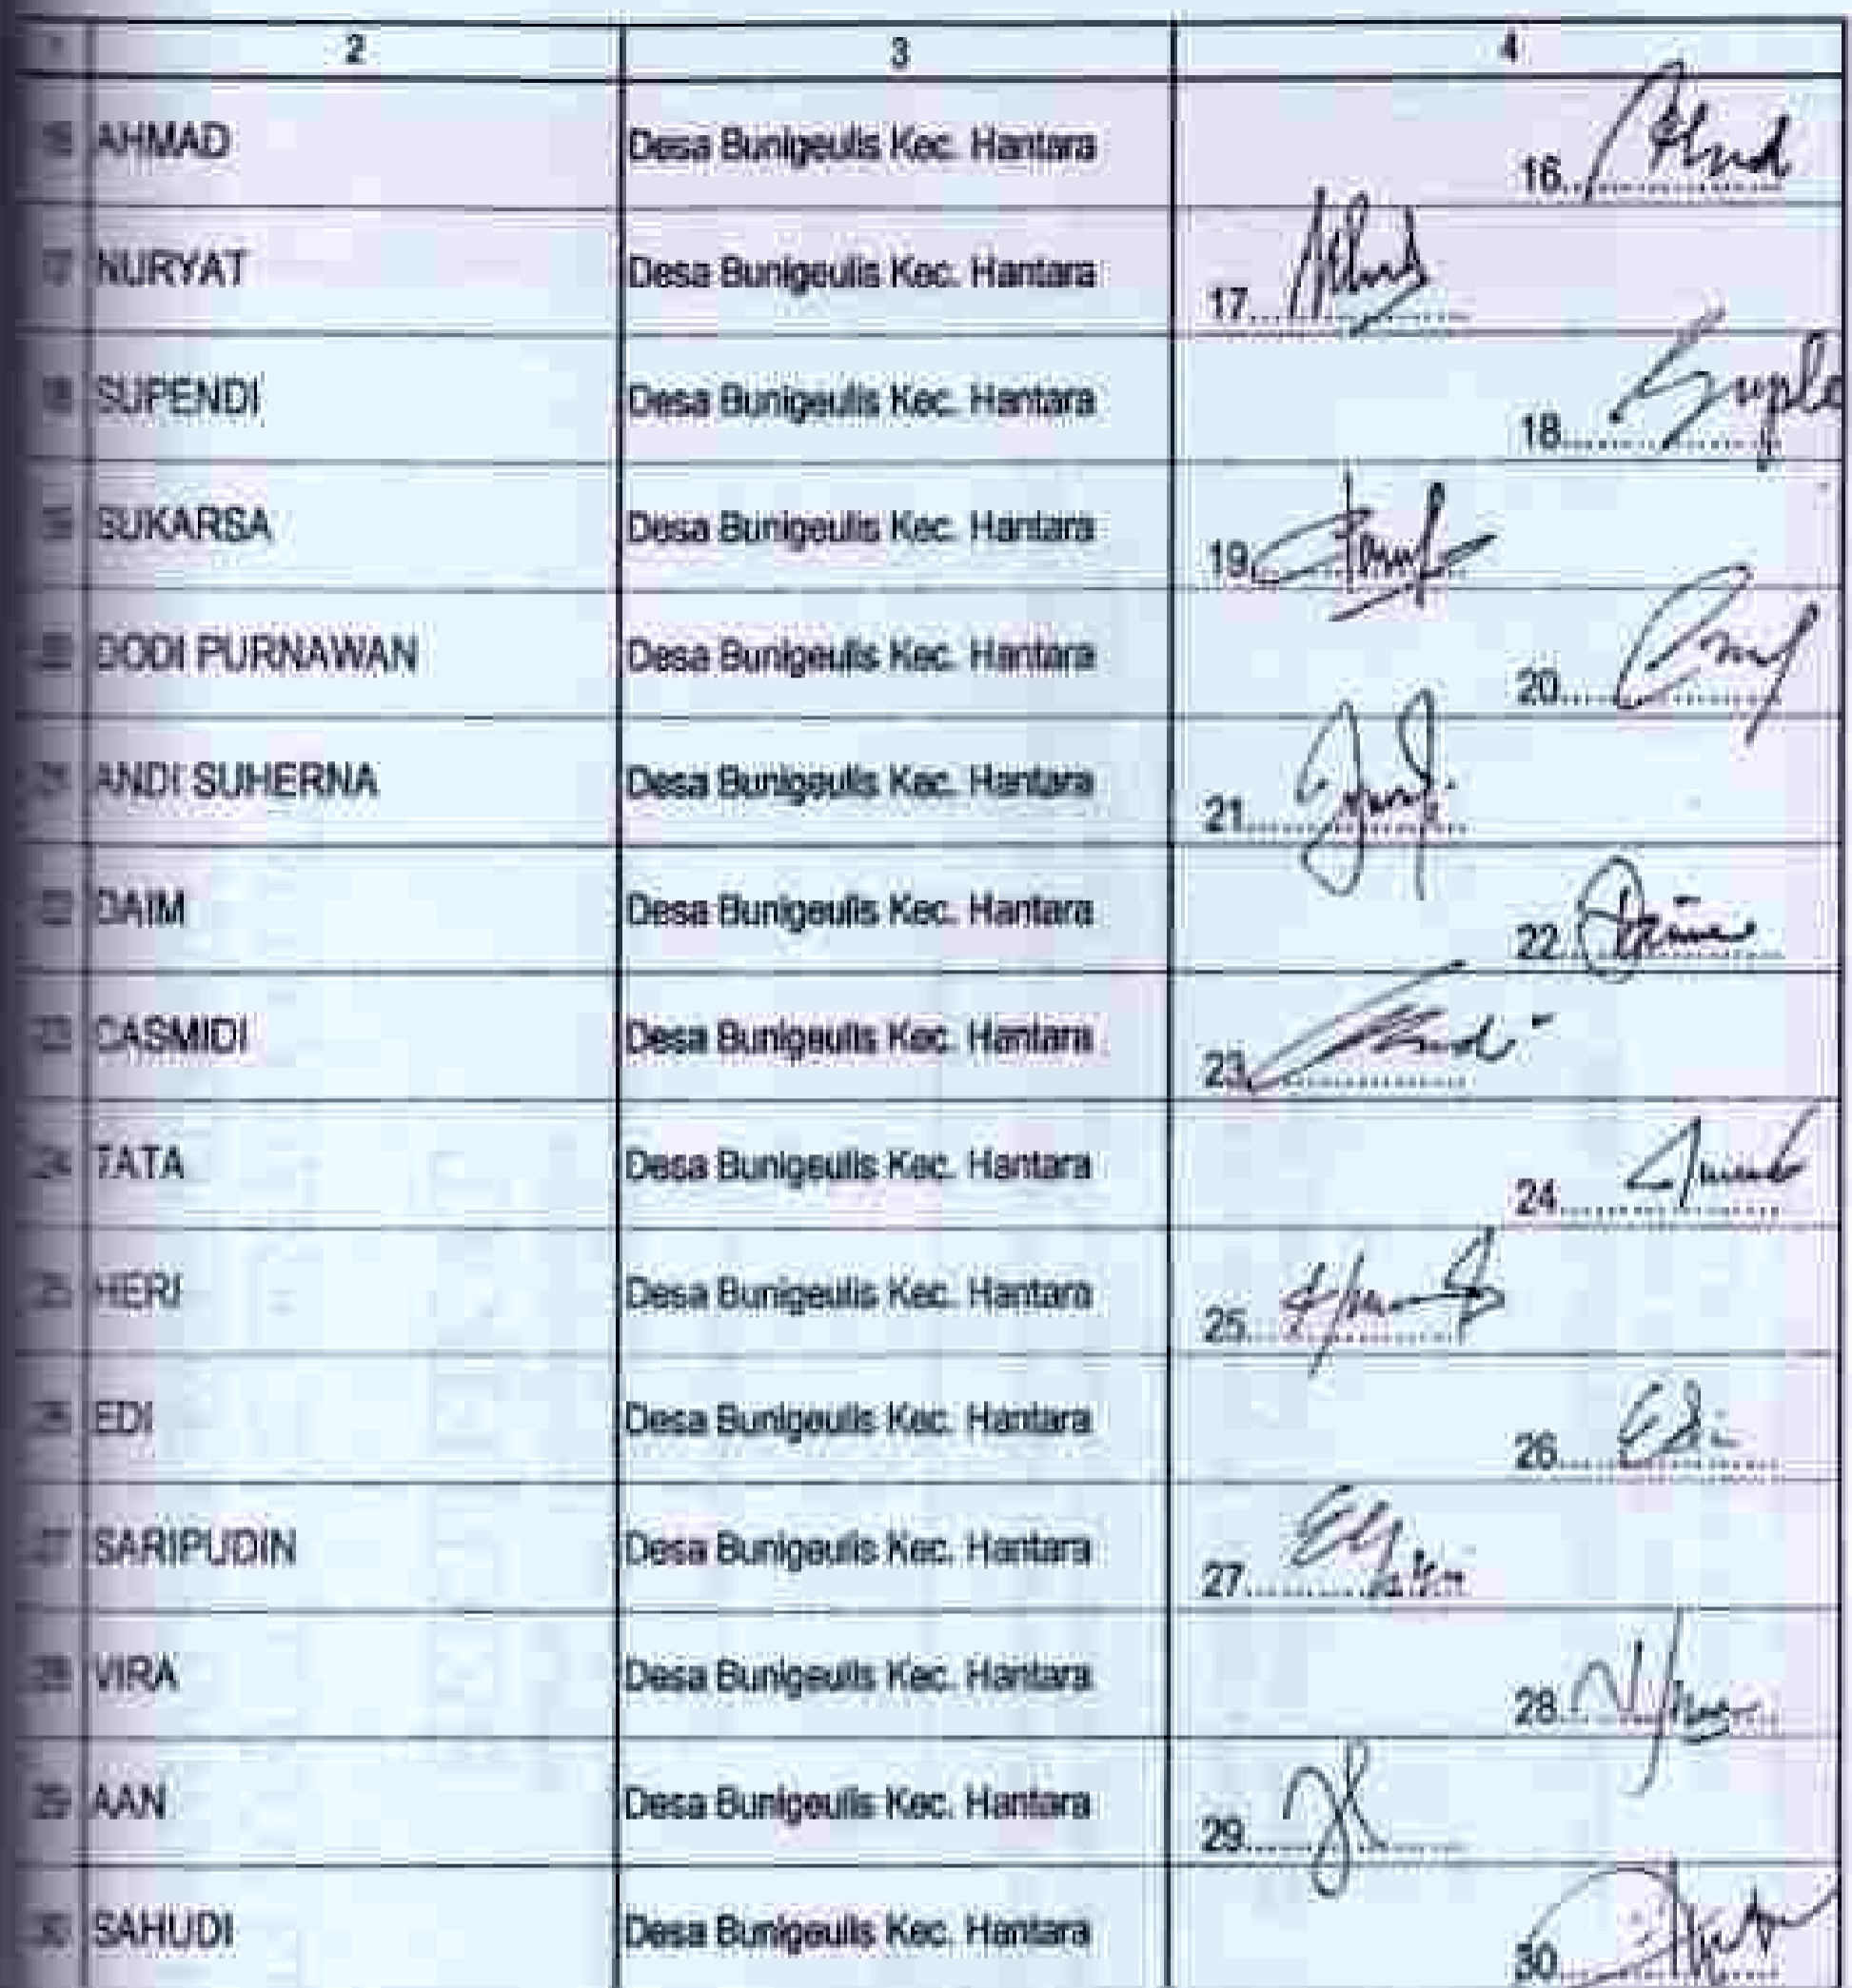 1 2 3 4
16 AHMAD Desa Bunigeulis Kec. Hantara 16
17 NURYAT Desa Bunigeulis Kec. Hantara 17
18 SUPENDI Desa Bunigeulis Kec. Hantara 18
19 SUKARSA Desa Bunigeulis Kec. Hantara 19
20 DODI PURNAWAN Desa Bunigeulis Kec. Hantara 20
21 ANDI SUHERNA Desa Bunigeulis Kec. Hantara 21
22 DAIM Desa Bunigeulis Kec. Hantara 22
23 CASMIDI Desa Bunigeulis Kec. Hantara 23
24 TATA Desa Bunigeulis Kec. Hantara 24
25 HERI Desa Bunigeulis Kec. Hantara 25
26 EDI Desa Bunigeulis Kec. Hantara 26 Edi
27 SARIPUDIN Desa Bunigeulis Kec. Hantara 27
28 VIRA Desa Bunigeulis Kec. Hantara 28
29 AAN Desa Bunigeulis Kec. Hantara 29
30 SAHUDI Desa Bunigeulis Kec. Hantara 30